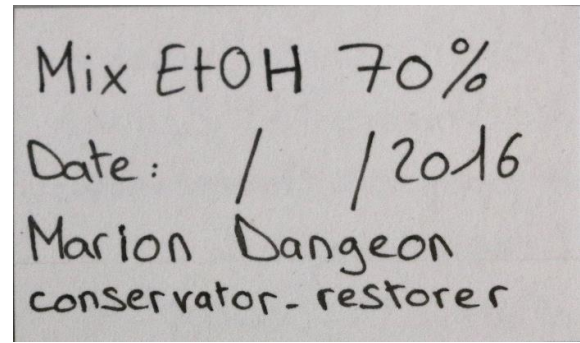 Mix EtOH 70%
Date: / /2016
Marion Dangeon
conservator-restorer